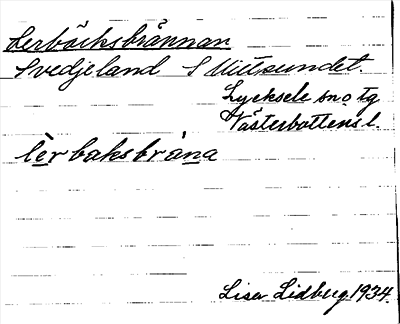 Lerbäcksbrånnan
Svedjeland S Vittsundet.
Lycksele sn o tg
Västerbottens l.
lèrbaksbråna
Lisa Lidberg 1934.